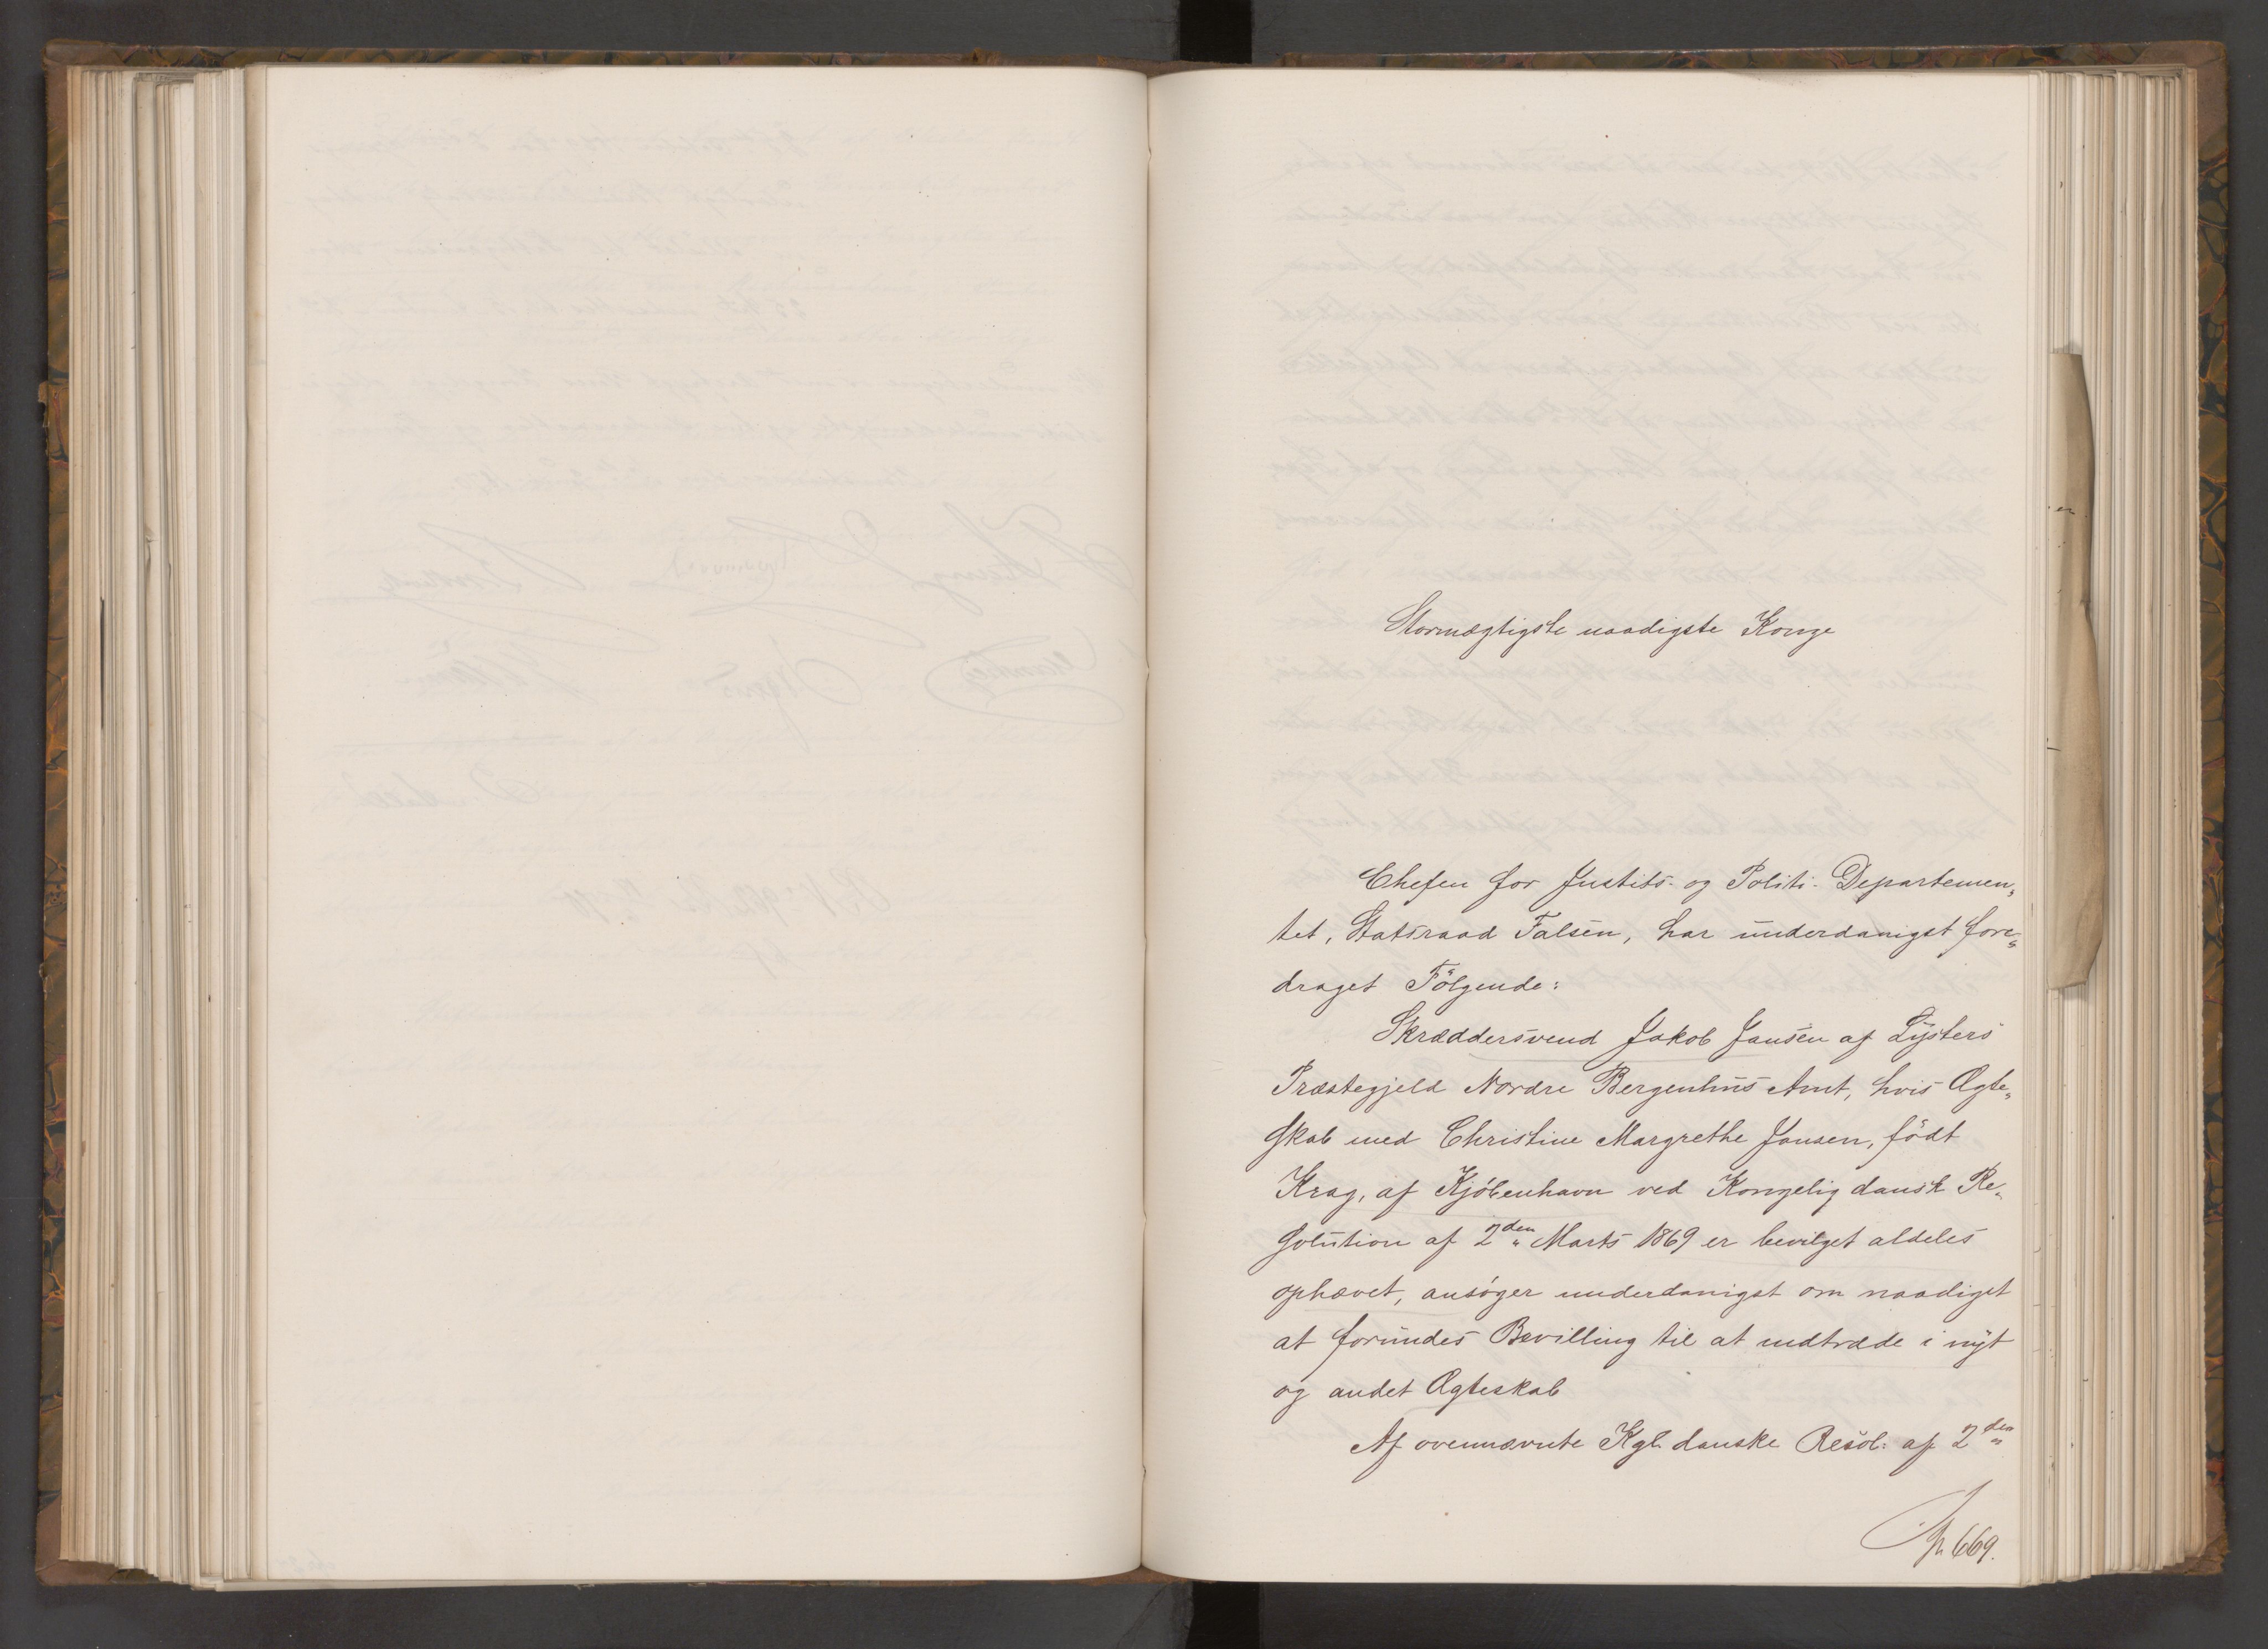 Stormægtigste naadigste Konge
Chefen for Justits- og Politi-Departemen„
tet, Statsraad Falsen, har underdanigst fore„
draget Følgende:
Skræddersvend Jakob Jansen af Lysters
Præstegjeld Nordre Bergenhus Amt, hvis Ægte„
skab med Christine Margrethe Jansen, født
Krag, af Kjøbenhavn ved Kongelig dansk Re„
solution af 2den Marts 1869 er bevilget aldeles
ophævet, ansøger underdanigst om naadigst
at forundes Bevilling til at indtræde i nyt
og andet Ægteskab
Af ovennævnte Kgl. danske Resol: af 2den
669.